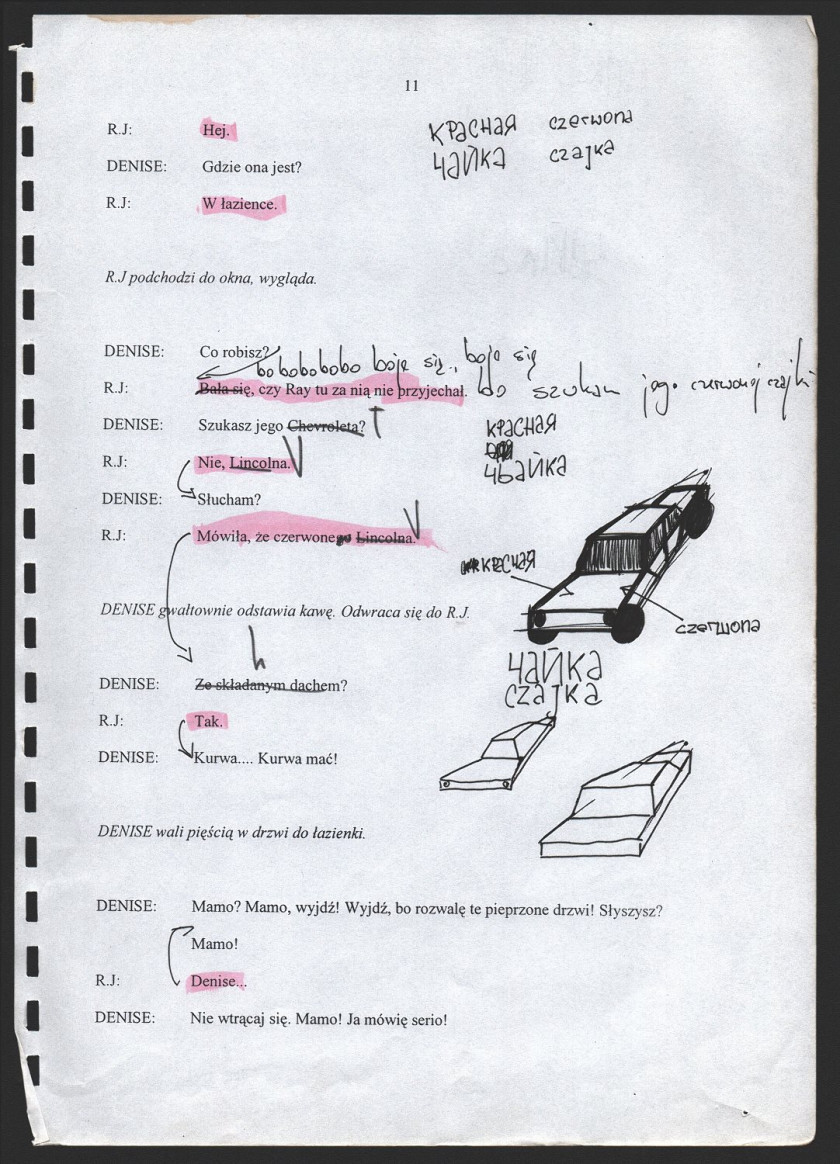 11
R.J: Hej.
КРАСНАЯ czerwona
DENISE: Gdzie ona jest?
ЧАЙКА czajka
R.J: W łazience.
R.J podchodzi do okna, wygląda.
DENISE: Co robisz?
bobobobobo boję się, boję się
R.J: Bała się, czy Ray tu za nią nie przyjechał. bo szukam jego czerwonej czajki
DENISE: Szukasz jego Chevroleta?
КРАСНАЯ
R.J: Nie, Lincolna.
ЧЬАЙКА
DENISE: Słucham?
R.J: Mówiła, że czerwonego Lincolna.
КРАСНАЯ
DENISE gwałtownie odstawia kawę. Odwraca się do R.J.
czerwona
ЧАЙКА
DENISE: Ze składanym dachem?
CZAJKA
R.J: Tak.
DENISE: Kurwa.... Kurwa mać!
DENISE wali pięścią w drzwi do łazienki.
DENISE: Mamo? Mamo, wyjdź! Wyjdź, bo rozwalę te pieprzone drzwi! Słyszysz?
Mamo!
R.J: Denise...
DENISE: Nie wtrącaj się. Mamo! Ja mówię serio!